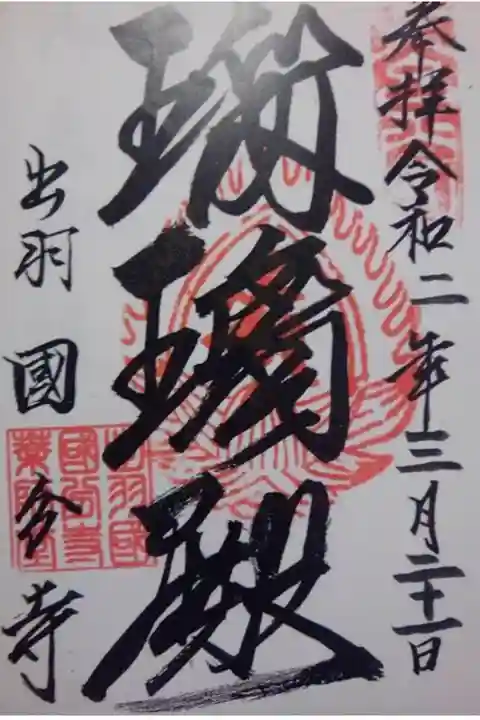 奉拝令和二年三月二十一日
瑠璃殿
出羽國分寺
出羽國
国分寺
薬師堂